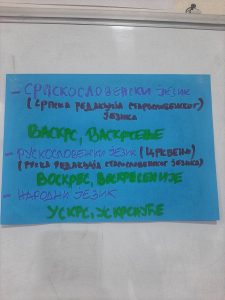 - СРПСКОСЛОВЕНСКИ ЈЕЗИК
(СРПСКА РЕДАКЦИЈА СТАРОСЛОВЕНСКОГ
ЈЕЗИКА)
ВАСКРС, ВАСКРСЕЊЕ
- РУСКОСЛОВЕНСКИ ЈЕЗИК (ЦРКВЕНИ)
(РУСКА РЕДАКЦИЈА СТАРОСЛОВЕНСКОГ ЈЕЗИКА)
ВОСКРЕС, ВОСКРЕСЕНИЈЕ
- НАРОДНИ ЈЕЗИК
УСКРС, УСКРСНУЋЕ